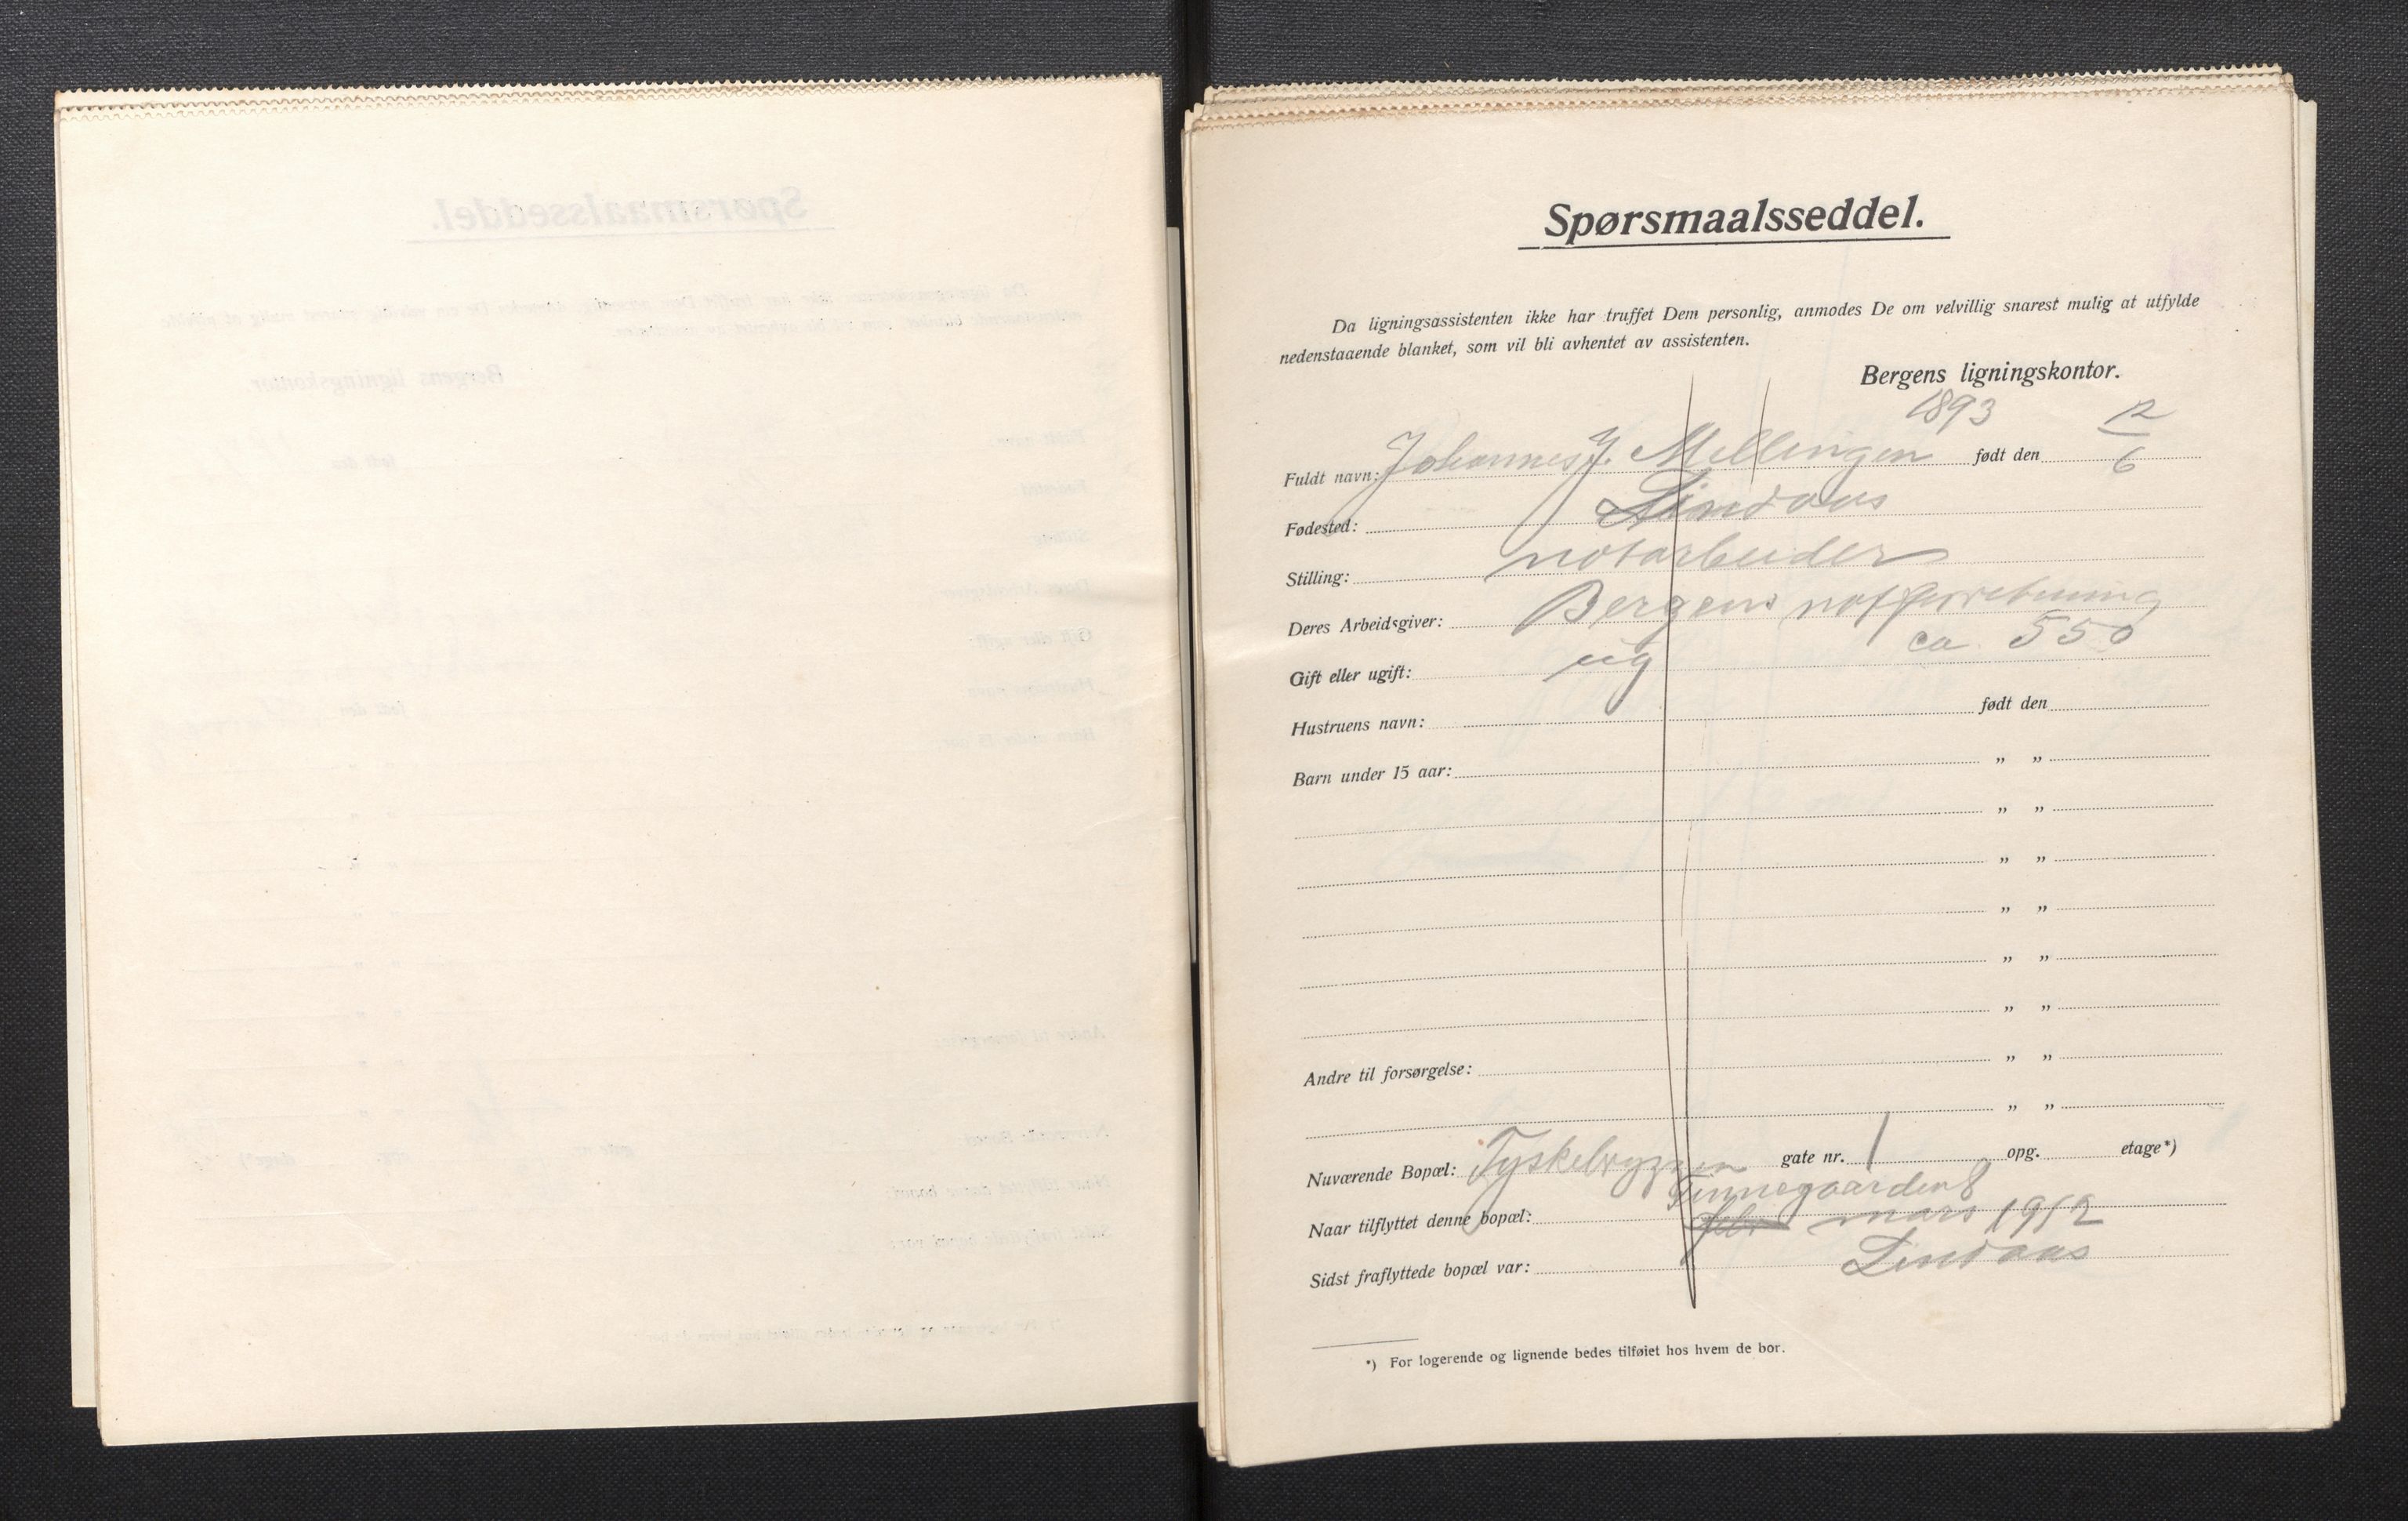 Spørsmaalsseddel.
Da ligningsassistenten ikke har truffet Dem personlig, anmodes De om velvillig snarest mulig at utfylde
nedenstaaende blanket, som vil bli avhentet av assistenten.
Bergens ligningskontor.
1893
Fuldt navn: Johannes J. Mellingen født den 12/6
Fødested: Lindaas
Stilling: notarbeider
Deres Arbeidsgiver: Bergens notforretning
ca. 550
Gift eller ugift: ug
Hustruens navn: født den
Barn under 15 aar: „ „
„ „
„ „
„ „
„ „
„ „
Andre til forsørgelse: „ „
„ „
Nuværende Bopæl: Tyskebryggen gate nr. 1 opg. etage*)
Finnegaarden
Naar tilflyttet denne bopæl: febr mars 1912
Sidst fraflyttede bopæl var: Lindaas
*) For logerende og lignende bedes tilføiet hos hvem de bor.